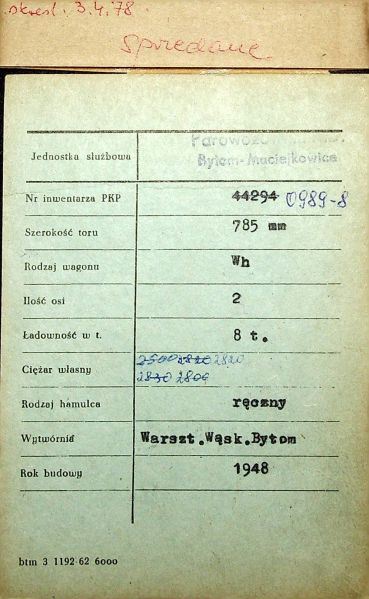 skreśl. 3.4.78.
Sprzedane
Jednostka służbowa
Bytom-Maciejkowice
Nr inwentarza PKP 44294 0989-8
Szerokość toru 785 mm
Rodzaj wagonu Wh
Ilość osi 2
Ładowność w t. 8 t.
Ciężar własny 2500 2820 2820
2830 2800
Rodzaj hamulca ręczny
Wytwórnia Warszt.Wąsk.Bytom
Rok budowy 1948
btm 3 1192-62 6000